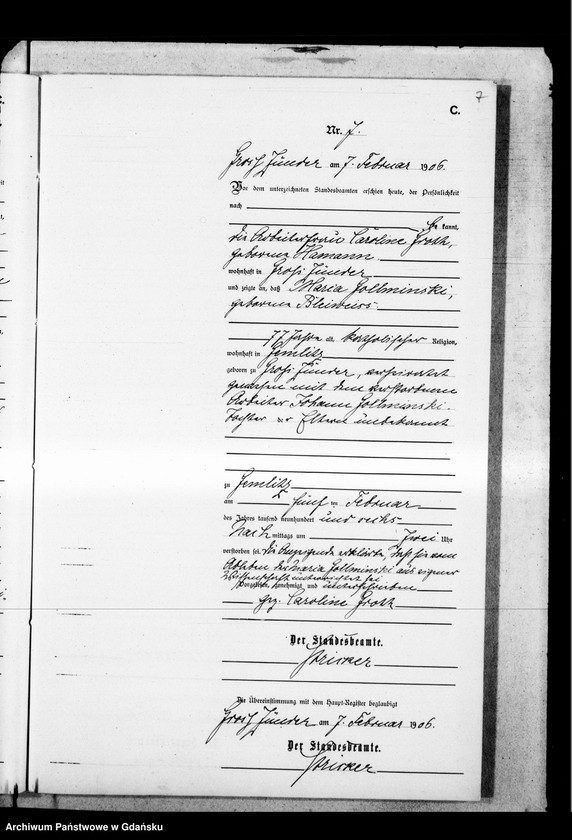 7
C.
Nr. 7.
Groß Zünder am 7. Februar 1906.
Vor dem unterzeichneten Standesbeamten erschien heute, der Persönlichkeit
nach
be kannt,
die Arbeiterfrau Caroline Groth,
geborene Hamann
wohnhaft in Groß Zünder
und zeigte an, daß Maria Gollminski,
geborene Bleiweiss
77 Jahre alt, katholischer Religion,
wohnhaft in Gemlitz
geboren zu Groß Zünder, verheiratet
gewesen mit dem verstorbenen
Arbeiter Johann Gollminski.
Tochter der Eltern unbekannt
zu Gemlitz
am fünf ten Februar
des Jahres tausend neunhundert und sechs
Nach mittags um zwei Uhr
verstorben sei. Die Anzeigende erklärte, daß sie vom
Ableben der Maria Gollminski aus eigner
Wissenschaft unterrichtet sei
Vorgelesen, genehmigt und unterschrieben
gez. Caroline Groth
Der Standesbeamte.
Stricker
Die Übereinstimmung mit dem Haupt-Register beglaubigt
Groß Zünder am 7. Februar 1906.
Der Standesbeamte.
Stricker
Archiwum Państwowe w Gdańsku